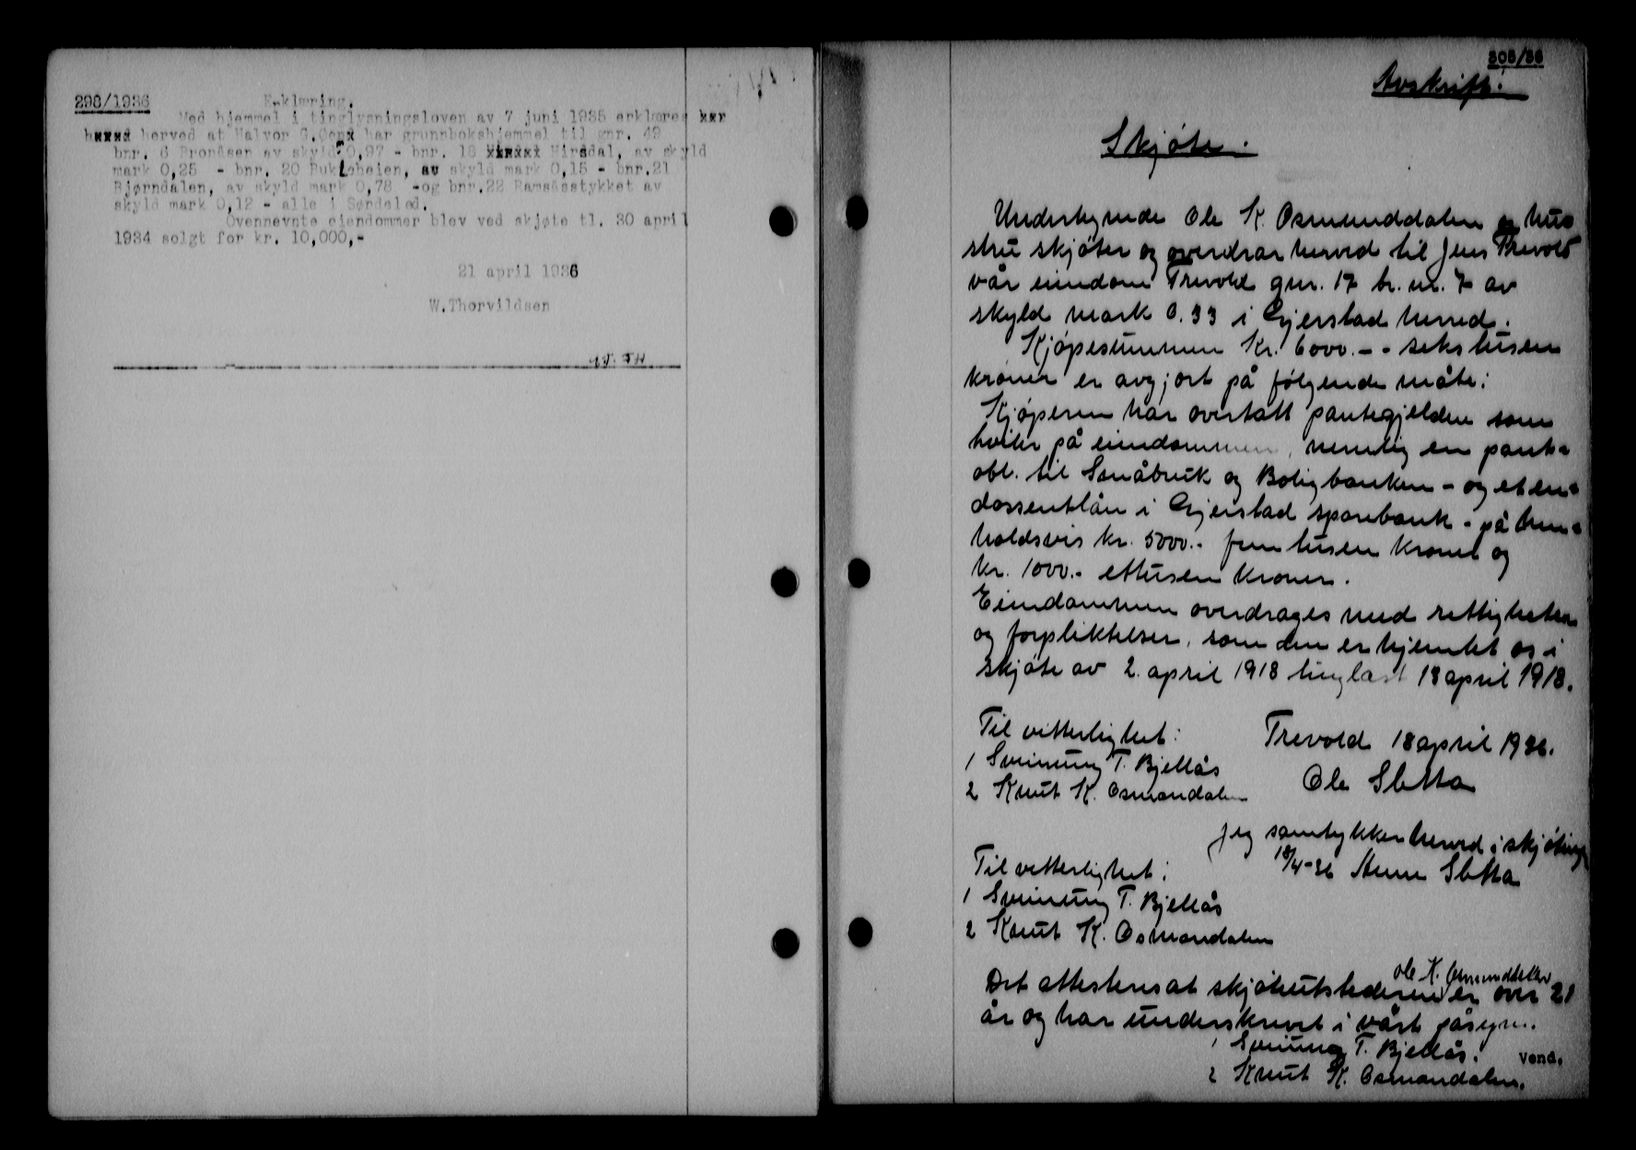 298/1936
Erklæring.
Med hjemmel i tinglysningsloven av 7 juni 1935 erklæres
herved at Halvor G. har grunnbokshjemmel til gnr. 49
bnr. 6 Bronåsen av skyld 0,97 - bnr. 18 Mirsdal, av skyld
mark 0,25 - bnr. 20 av skyld mark 0,15 - bnr.21
Bjørndalen, av skyld mark 0,78 -og bnr.22 Ramsåsstykket av
skyld mark 0,12 - alle i Søndeled.
Ovennevnte eiendommer blev ved skjøte tl. 30 april
1934 solgt for kr. 10,000,-
21 april 1936
W.Thorvildsen
306/36
Avskrift.
Skjøte.
Undertegnede Ole K. Osmunddalen og hus
stru skjøter og overdrar herved til Jens Trevold
vår eiendom Trevold gnr. 17 br. nr. 7 av
skyld mark 0.33 i Gjerstad herred.
Kjøpesummen Kr. 6000.-- sekstusen
kroner er avgjort på følgende måte:
Kjøperen har overtatt pantegjelden som
hviler på eiendommen, nemlig en pant=
obl. til Småbruk og Boligbanken - og et en=
dossentlån i Gjerstad sparebank - på hen=
holdsvis kr. 5000.- fem tusen kroner og
kr. 1000.- ettusen kroner.
Eiendommen overdrages med rettigheter
og forpliktelser, som den er hjemlet os i
skjøte av 2. april 1918 tinglæst 18 april 1918.
Til vitterlighet:
Trevold 18 april 1936.
1 Sveinung T. Bjellås
Ole Sletta
2 Knut K. Osmondalen
Jeg samtykker herved i skjøtingen
18/4-36 Anne Sletta
Til vitterlighet:
1 Sveinung T. Bjellås
2 Knut K. Osmondalen
Ole K. Osmunddalen
Det attesteres at skjøteutstederen er over 21
år og har underskrevet i vårt påsyn.
1 Sveinung T. Bjellås.
Vend.
2 Knut K. Osmondalen.